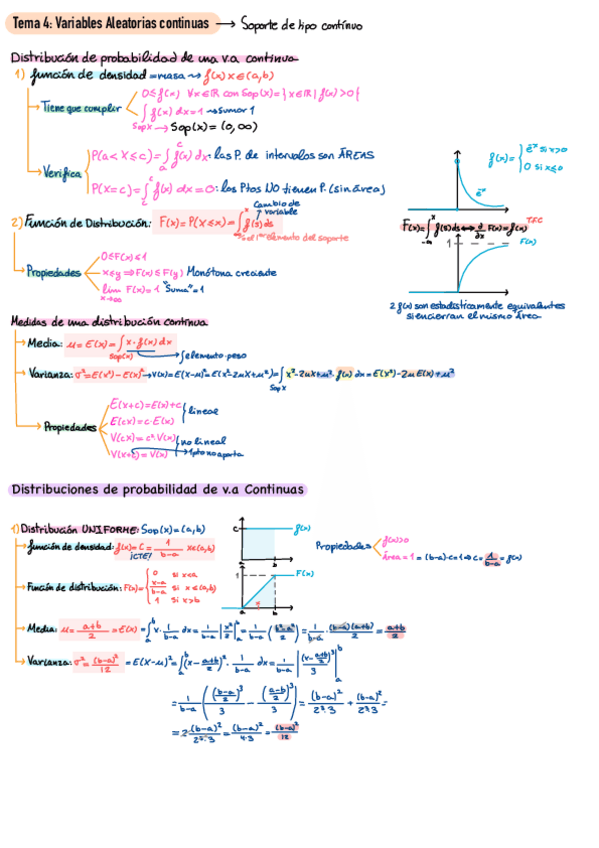 Tema 4: Variables Aleatorias continuas → Soporte de tipo contínuo
Distribución de probabilidad de una v.a. continua
1) función de densidad = masa → f(x) x∈(a,b)
Tiene que cumplir
0≤f(x) ∀x∈ℝ con Sop(x)={x∈ℝ | f(x)>0}
∫ f(x) dx=1 → Sumar 1
Sop x → Sop(x)=(0,∞)
Verifica
P(a<X≤c)=∫ₐᶜ f(x) dx: las P. de intervalos son ÁREAS
P(X=c)=∫ f(x) dx=0: los Ptos NO tienen P. (sin área)
f(x)={ e⁻ˣ si x>0
0 si x≤0
e⁻ˣ
Cambio de variable
2) Función de Distribución: F(x)=P(X≤x)=∫ f(s)ds
el 1er elemento del soporte
F(x)=∫ f(s)ds ⟷ d/dx F(x)=f(x) TFC
1
F(x)
Propiedades
0≤F(x)≤1
x≤y ⇒ F(x)≤F(y) Monótona creciente
lim x→∞ F(x)=1 "Suma"=1
2 f(x) son estadísticamente equivalentes
si encierran el mismo área.
Medidas de una distribución continua
Media: μ=E(x)=∫ x·f(x) dx
Sop(x) → ∫elemento·peso
Varianza: σ²=E(x²)-E(x)² → V(x)=E(X-μ)²=E(x²-2μX+μ²)=∫ x²-2μx+μ²·f(x) dx=E(x²)-2μE(x)+μ²
Sop x
Propiedades
E(x+c)=E(x)+c
E(cx)=c·E(x)
lineal
V(cx)=c²·V(x)
V(x+c)=V(x)
no lineal
1 pto no aporta
Distribuciones de probabilidad de v.a Continuas
1) Distribución UNIFORME: Sop(x)=(a,b)
función de densidad: f(x)=C=1/(b-a) x∈(a,b)
¡CTE!
c
f(x)
a b
Propiedades
f(x)>0
Área=1=(b-a)·c=1⇒c=1/(b-a)=f(x)
Función de distribución: F(x)={ 0 si x<a
(x-a)/(b-a) si x∈(a,b)
1 si x>b
1
F(x)
a x b
Media: μ=(a+b)/2=E(x)=∫ₐᵇ x·1/(b-a) dx=1/(b-a)|x²/2|ₐᵇ=1/(b-a)((b²-a²)/2)=1/(b-a)·(b-a)(a+b)/2=(a+b)/2
Varianza: σ²=(b-a)²/12=E(X-μ)²=∫ₐᵇ(x-(a+b)/2)²·1/(b-a) dx=1/(b-a)|(x-(a+b)/2)³/3|ₐᵇ
=1/(b-a)(((b-a)/2)³/3-((a-b)/2)³/3)=(b-a)²/(2³·3)+(b-a)²/(2³·3)=
=2·(b-a)²/(2³·3)=(b-a)²/(4·3)=(b-a)²/12